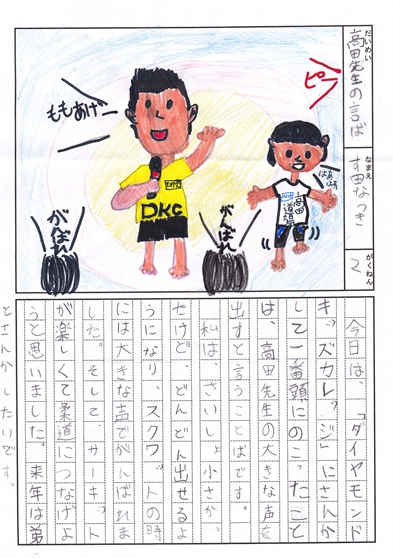 だいめい
高田先生の言ば
なまえ
す田なつき
がくねん
2
ピーッ
ももあげー
はあはあ
がんばれ
がんばれ
DKC
高田
道場
今日は、「ダイヤモンド
キッズカレッジ」にさんか
して一番頭にのこったこと
は、高田先生の大きな声を
出すと言うことばです。
私は、さいしょ小さかっ
たけど、どんどん出せるよ
うになり、スクワットの時
には大きな声でがんばれま
した。そして、サーキット
が楽しくて柔道につなげよ
うと思いました。来年は弟
とさんかしたいです。